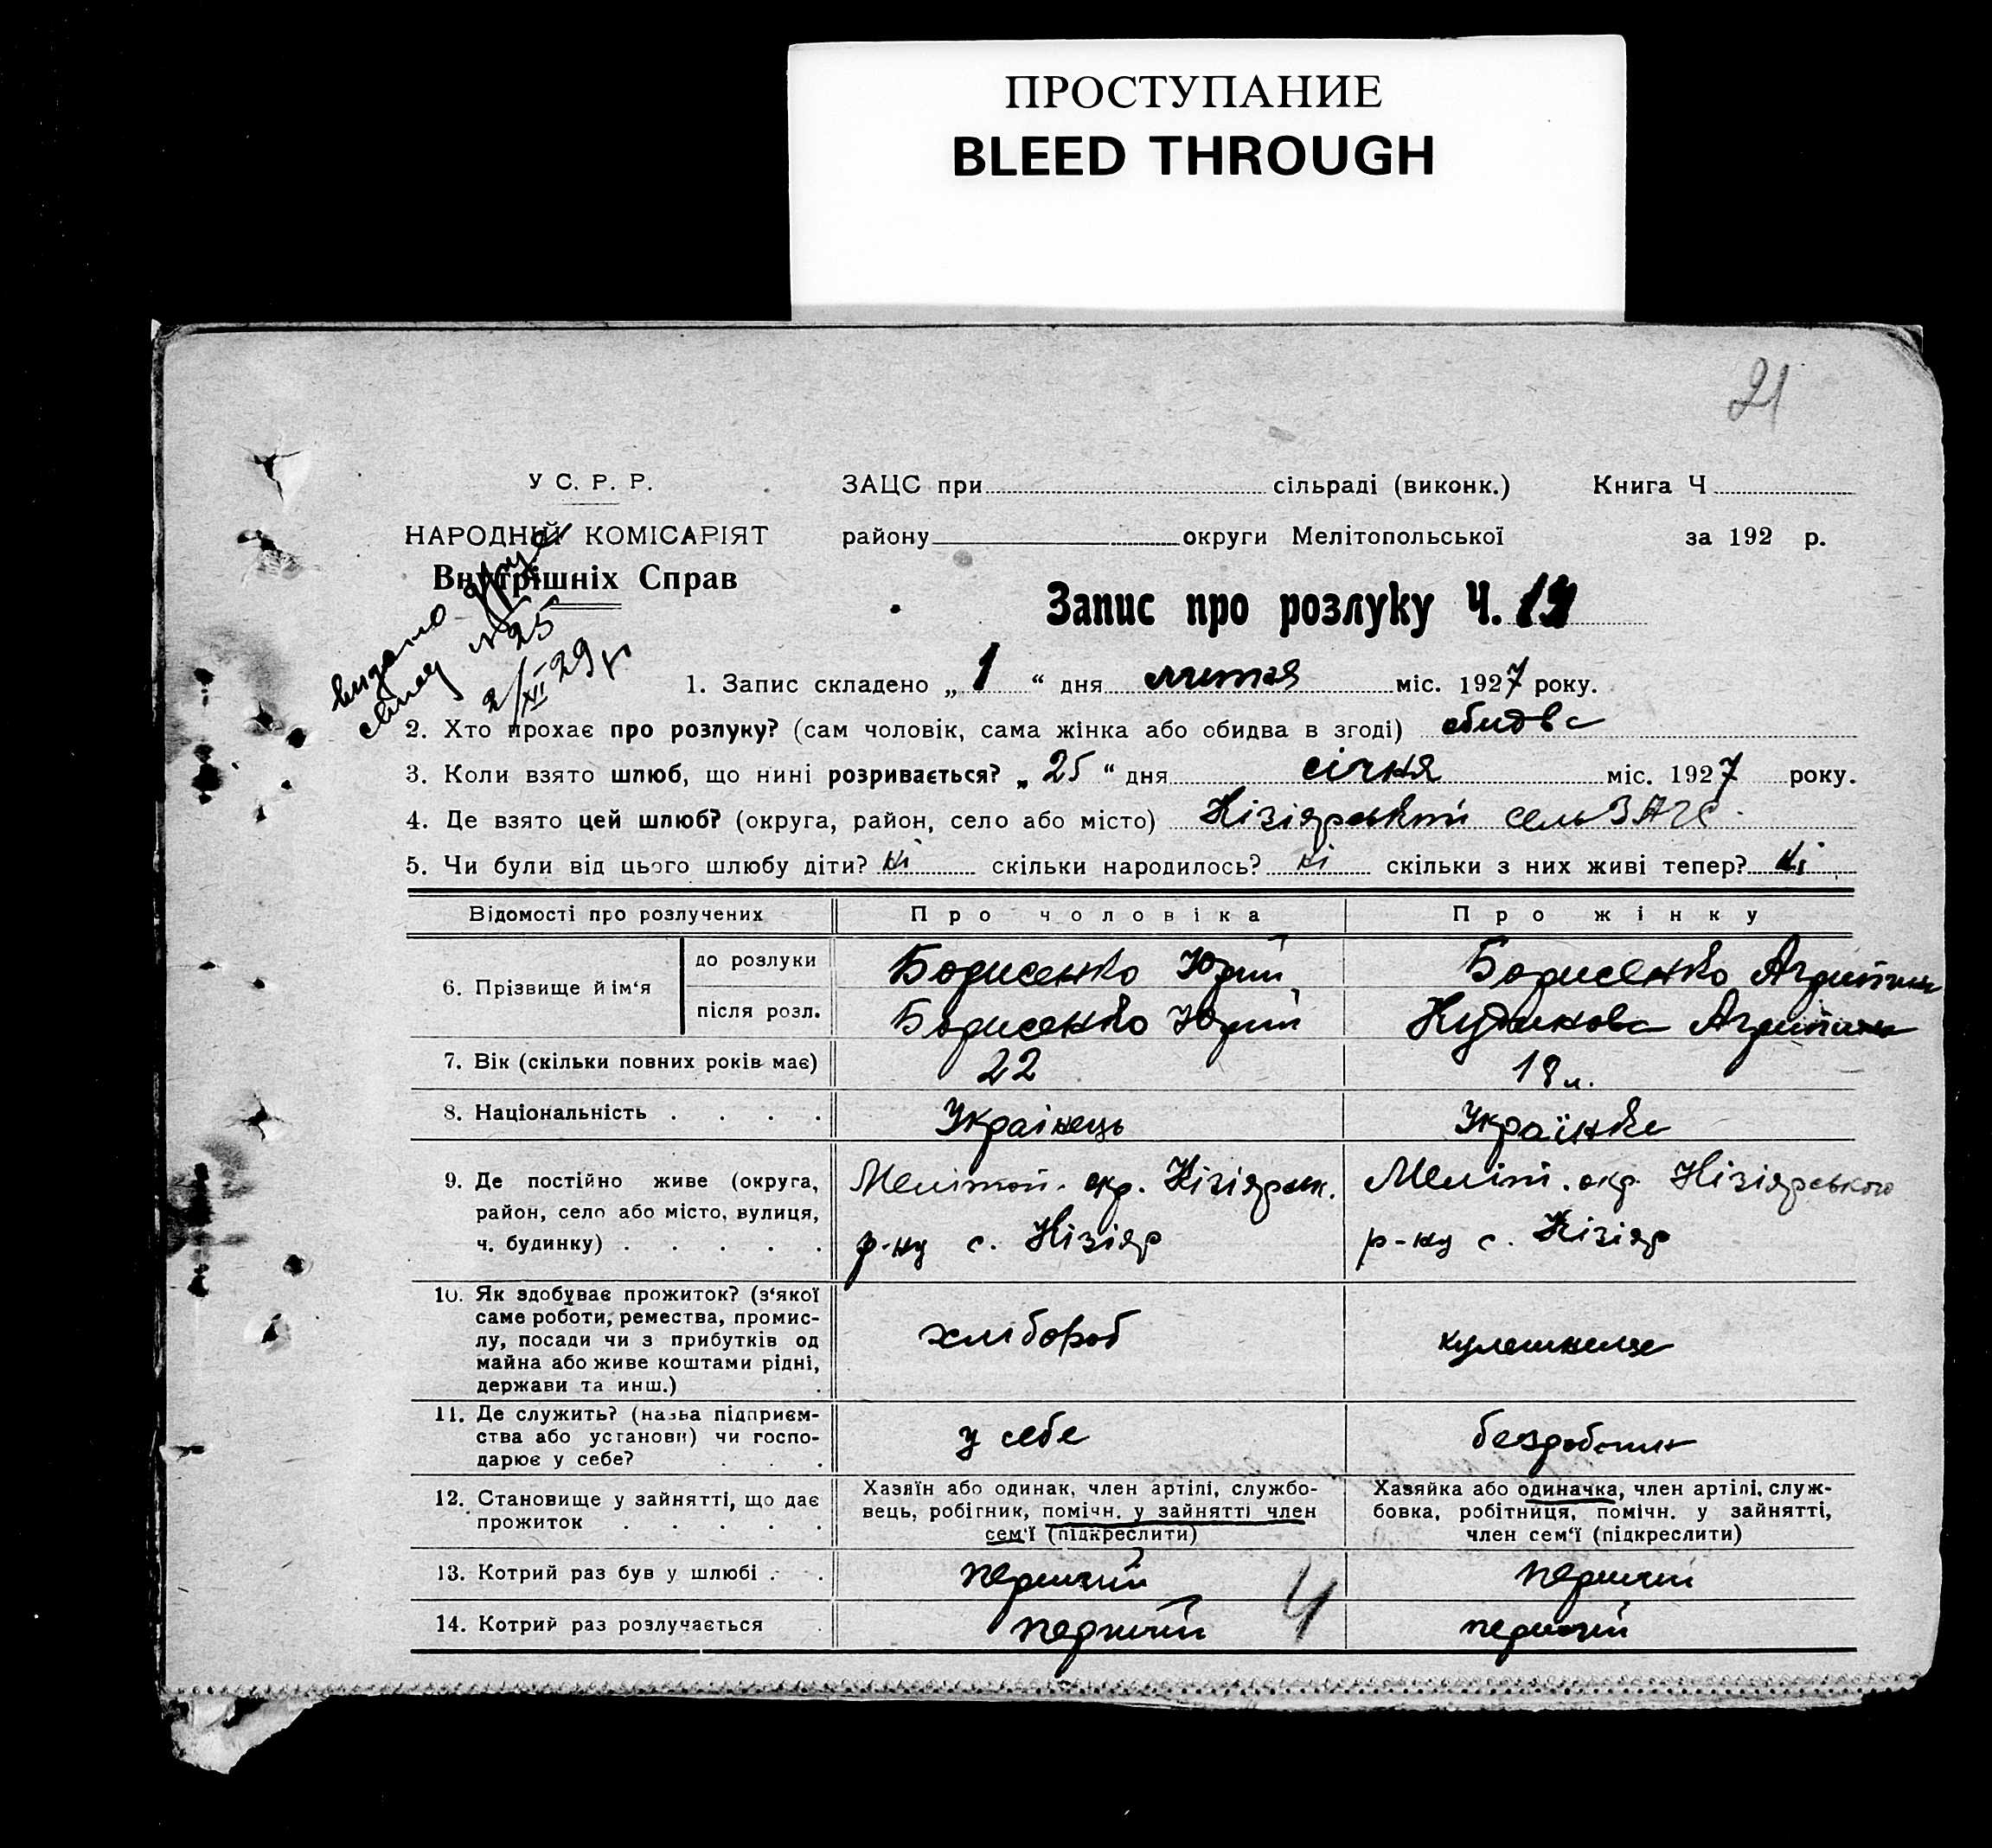 ПРОСТУПАНИЕ
BLEED THROUGH
21
У С. Р. Р.
НАРОДНІЙ КОМІСАРІЯТ
Внутрішніх Справ
видано
№ 25
2/XI 29 р
ЗАЦС при сільраді (виконк.) Книга Ч
району округи Мелітопольської за 192 р.
Запис про розлуку Ч.
1. Запис складено „ 1 “ дня лютня міс. 1927 року.
2. Хто прохає про розлуку? (сам чоловік, сама жінка або обидва в згоді) обидва
3. Коли взято шлюб, що нині розривається? „ 25 “ дня січня міс. 1927 року.
4. Де взято цей шлюб? (округа, район, село або місто) Кізіярський сельЗАГС
5. Чи були від цього шлюбу діти? ні скільки народилось? ні скільки з них живі тепер? ні
Відомості про розлучених Про чоловіка Про жінку
6. Прізвище й ім'я до розлуки Борисенко Юрий Борисенко Агрипина
після розл. Борисенко Юрий Агрипина
7. Вік (скільки повних років має) 22 18 л.
8. Національність . . . . Украінець Украінка
9. Де постійно живе (округа, район, село або місто, вулиця, ч. будинку) . . . . . Мелітоп. окр. Кізіярськ. р-ну с. Кізіяр Меліт. окр. Кізіярського р-ну с. Кізіяр
10. Як здобуває прожиток? (з'якої саме роботи, ремества, промислу, посади чи з прибутків од майна або живе коштами рідні, держави та инш.) . хлібороб
11. Де служить? (назва підприємства або установи) чи господарює у себе? . . . у себе безробітня
12. Становище у зайнятті, що дає прожиток . . . . . Хазяїн або одинак, член артілі, службовець, робітник, помічн. у зайнятті член сем'ї (підкреслити) Хазяйка або одиначка, член артілі, службовка, робітниця, помічн. у зайнятті, член сем'ї (підкреслити)
13. Котрий раз був у шлюбі . . перший перший
14. Котрий раз розлучається перший 4 перший